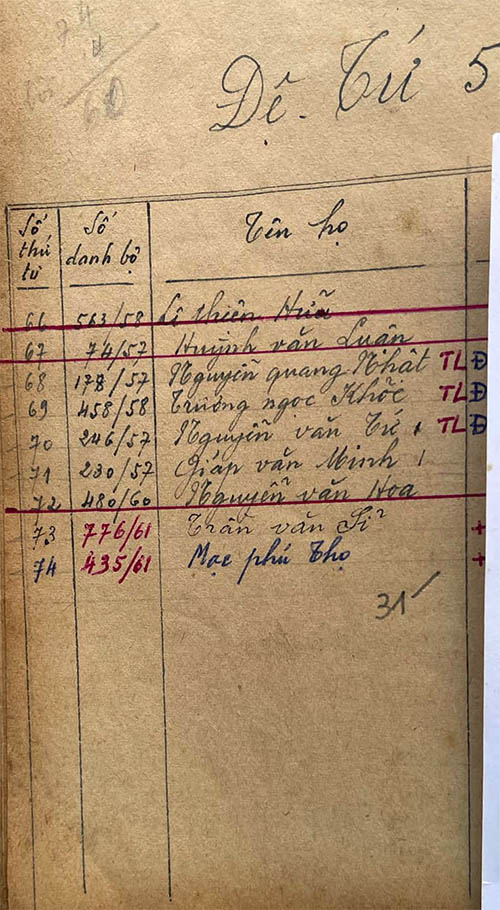 74
4
60
Đệ. Tứ 5
Số thứ tự Số danh bộ Tên họ
66 563/58 Lê thiên Hữu
67 74/57 Huỳnh văn Luân
68 178/57 Nguyễn quang Nhật TLĐ
69 458/58 Trương ngọc Khôi TLĐ
70 246/57 Nguyễn văn Tú TLĐ
71 230/57 Giáp văn Minh
72 480/60 Nguyễn văn Hoa
73 776/61 Trần văn Sĩ +
74 435/61 Mạc phú Thọ +
31